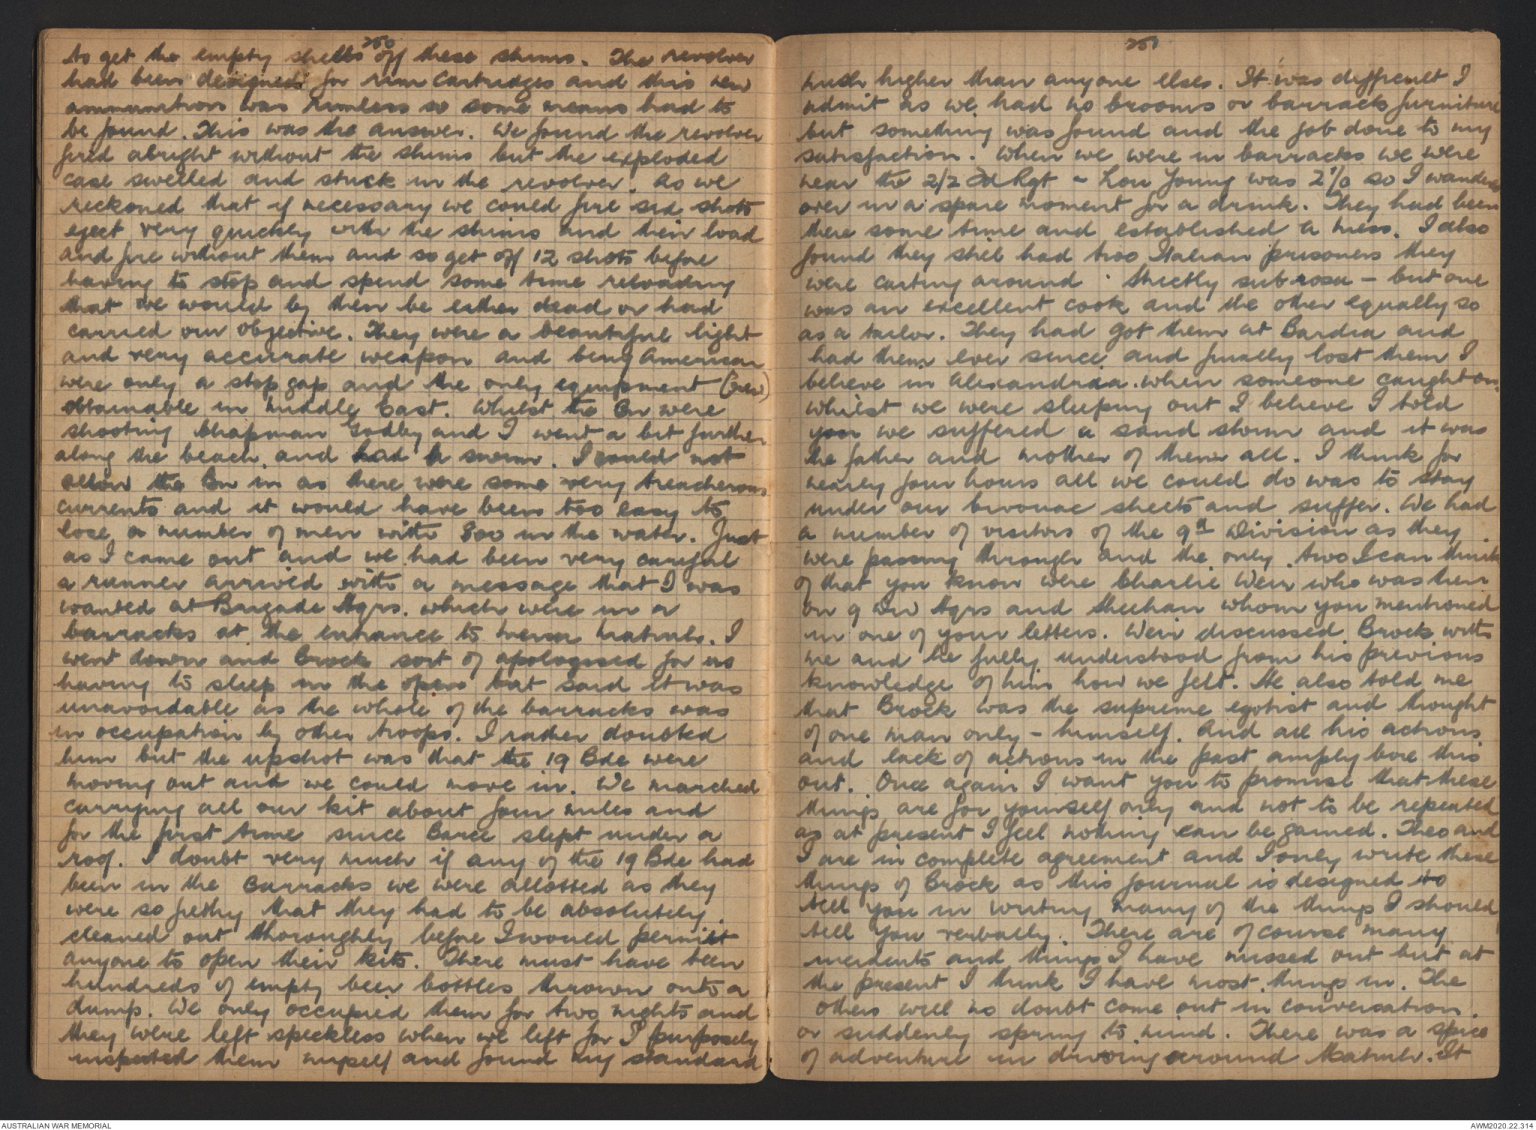 250
to get the empty shells off these shims. The revolver
had been designed for rim cartridges and this new
ammunition was rimless so some means had to
be found. This was the answer. We found the revolver
fired alright without the shims but the exploded
case swelled and stuck in the revolver. As we
reckoned that if necessary we could fire six shots
eject very quickly with the shims and then load
and fire without them and so get off 12 shots before
having to stop and spend some time reloading
that we would by then be either dead or had
carried our objective. They were a beautiful light
and very accurate weapon and being American
were only a stop gap and the only equipment (new)
obtainable in Middle East. Whilst the Bn were
shooting Chapman Godley and I went a bit further
along the beach and had a swim. I could not
allow the Bn in as there were some very treacherous
currents and it would have been too easy to
lose a number of men with 800 in the water. Just
as I came out and we had been very careful
a runner arrived with a message that I was
wanted at Brigade Hqrs. which were in a
barracks at the entrance to Mersa Matruh. I
went down and Brock sort of apologised for us
having to sleep in the open but said it was
unavoidable as the whole of the barracks was
in occupation by other troops. I rather doubted
him but the upshot was that the 19 Bde were
moving out and we could move in. We marched
carrying all our kit about four miles and
for the first time since Barce slept under a
roof. I doubt very much if any of the 19 Bde had
been in the barracks we were allotted as they
were so filthy that they had to be absolutely
cleaned out thoroughly before I would permit
anyone to open their kits. There must have been
hundreds of empty beer bottles thrown onto a
dump. We only occupied them for two nights and
they were left speckless when we left for I purposely
inspected them myself and found my standard
251
much higher than anyone elses. It was difficult I
admit as we had no brooms or barracks furniture
but something was found and the job done to my
satisfaction. When we were in barracks we were
near the 2/2 Fd Rgt - Lou Young was 2 i/c so I wandered
over in a spare moment for a drink. They had been
there some time and established a mess. I also
found they still had two Italian prisoners they
were carting around. Strictly sub rosa - but one
was an excellent cook and the other equally so
as a tailor. They had got them at Bardia and
had them ever since and finally lost them I
believe in Alexandria when someone caught on.
Whilst we were sleeping out I believe I told
you we suffered a sand storm and it was
the father and mother of them all. I think for
nearly four hours all we could do was to stay
under our bivouac sheets and suffer. We had
a number of visitors of the 9th Division as they
were passing through and the only two I can think
of that you know were Charlie Weir who was then
on 9 Div Hqrs and Sheehan whom you mentioned
in one of your letters. Weir discussed Brock with
me and he fully understood from his previous
knowledge of him how we felt. He also told me
that Brock was the supreme egotist and thought
of one man only - himself. And all his actions
and lack of actions in the past amply bore this
out. Once again I want you to promise that these
things are for yourself only and not to be repeated
as at present I feel nothing can be gained. Theo and
I are in complete agreement and I only write these
things of Brock as this journal is designed to
tell you in writing many of the things I should
tell you verbally. There are of course many
incidents and things I have missed out but at
the present I think I have most things in. The
others will no doubt come out in conversation
or suddenly spring to mind. There was a spice
of adventure in driving around Matruh. It
AUSTRALIAN WAR MEMORIAL
AWM2020.22.314